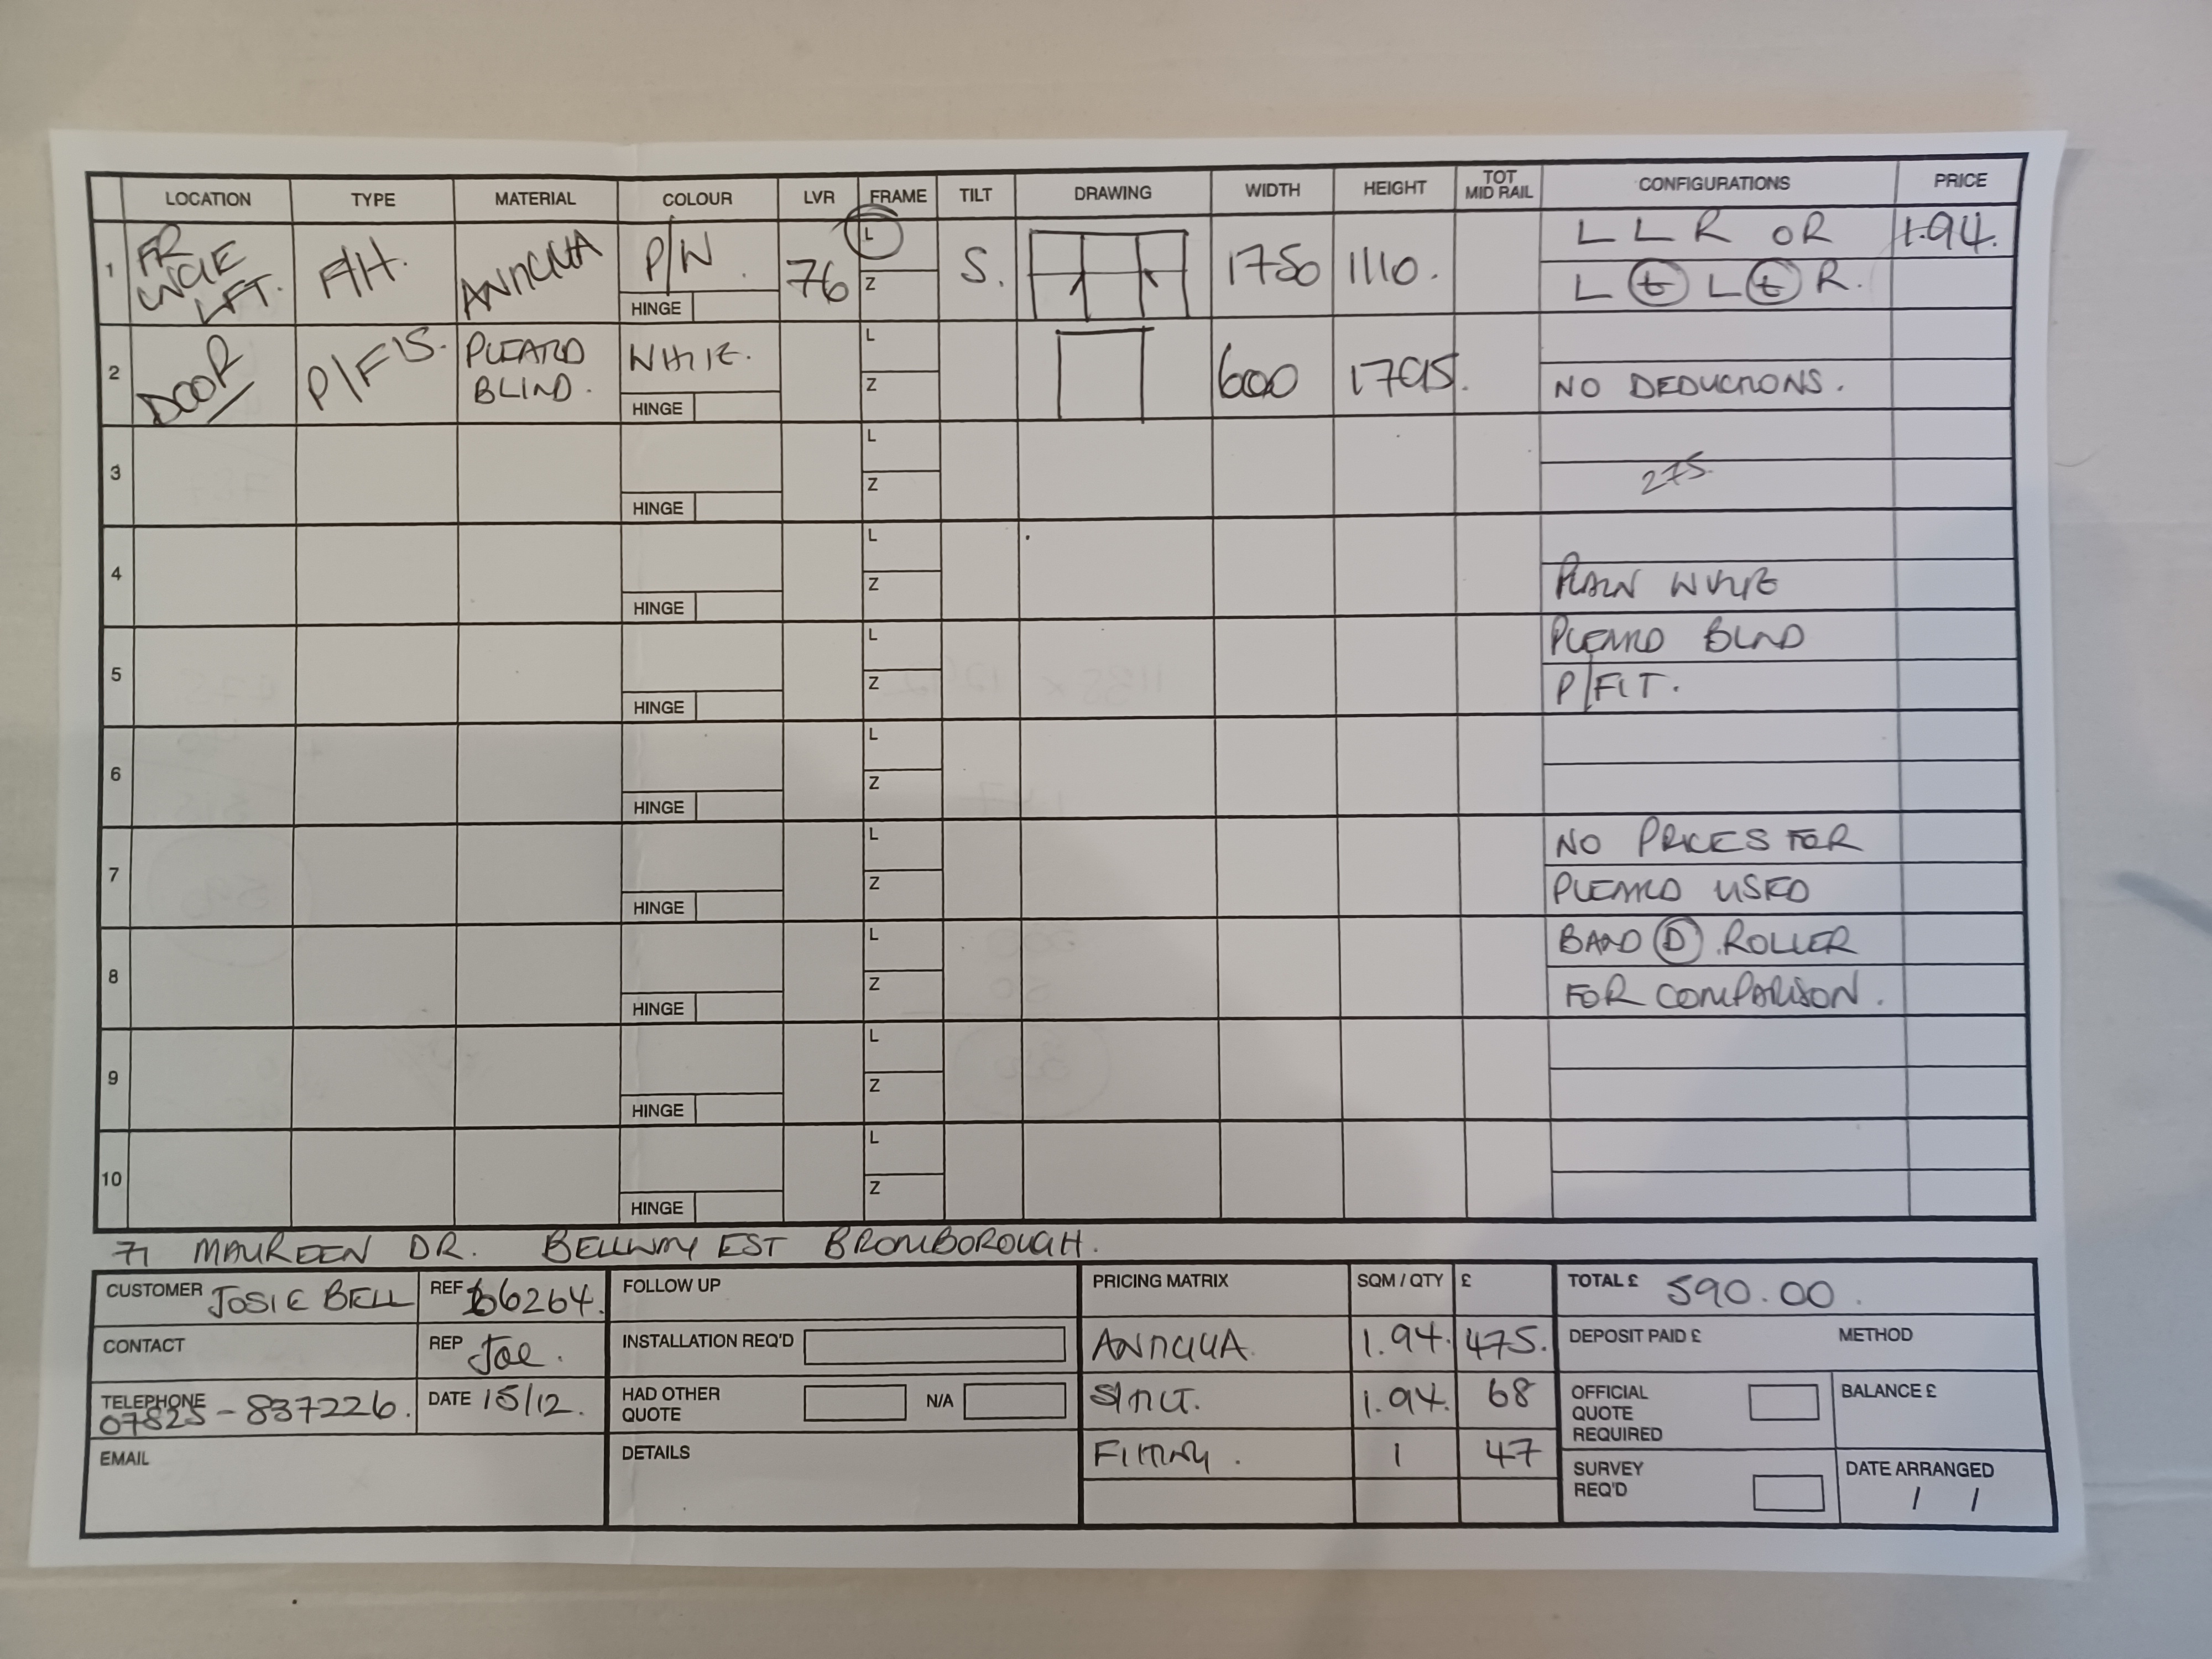 LOCATION TYPE MATERIAL COLOUR LVR FRAME TILT DRAWING WIDTH HEIGHT TOT MID RAIL CONFIGURATIONS PRICE
1 FR LFT. F/H. ANTIGUA P/W. HINGE 76 L Z S. 1750 1110. L L R OR 1.94.
L t L t R.
2 DOOR P/F/S. PLEATED BLIND. WHITE. HINGE L Z 600 1795. NO DEDUCTIONS.
3 HINGE L Z 275.
4 HINGE L Z PLAIN WHITE
5 HINGE L Z PLEATED BLIND
P/FIT.
6 HINGE L Z
7 HINGE L Z NO PRICES FOR
PLEATED USED
8 HINGE L Z BAND D. ROLLER
FOR COMPARISON.
9 HINGE L Z
10 HINGE L Z
71 MAUREEN DR. BELLWAY EST BROMBOROUGH.
CUSTOMER JOSIE BELL REF 66264.
CONTACT REP Joe.
TELEPHONE 07825-837226. DATE 15/12.
EMAIL
FOLLOW UP
INSTALLATION REQ'D
HAD OTHER QUOTE N/A
DETAILS
PRICING MATRIX SQM / QTY £
ANTIGUA. 1.94. 475.
S/TILT. 1.94. 68
FITTING. 1 47
TOTAL £ 590.00.
DEPOSIT PAID £ METHOD
OFFICIAL QUOTE REQUIRED BALANCE £
SURVEY REQ'D DATE ARRANGED
/ /